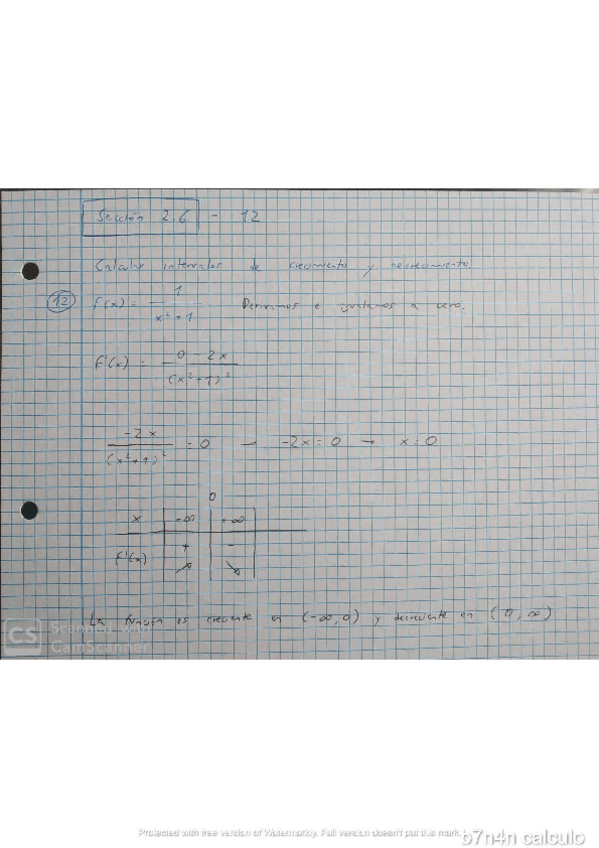 Sección 2.6 - 12
Calcular intervalos de crecimiento y decrecimiento
12 f(x) = 1 / (x² + 1) Derivamos e igualamos a cero.
f'(x) = (0 - 2x) / (x² + 1)²
-2x / (x² + 1)² = 0 → -2x = 0 → x = 0
0
x | -∞ | +∞ |
f'(x) | + | - |
↗ ↘
La función es creciente en (-∞, 0) y decreciente en (0, ∞)
CS Scanned with
CamScanner
Protected with free version of Watermarkly. Full version doesn't put this mark.
b7n4n calculo